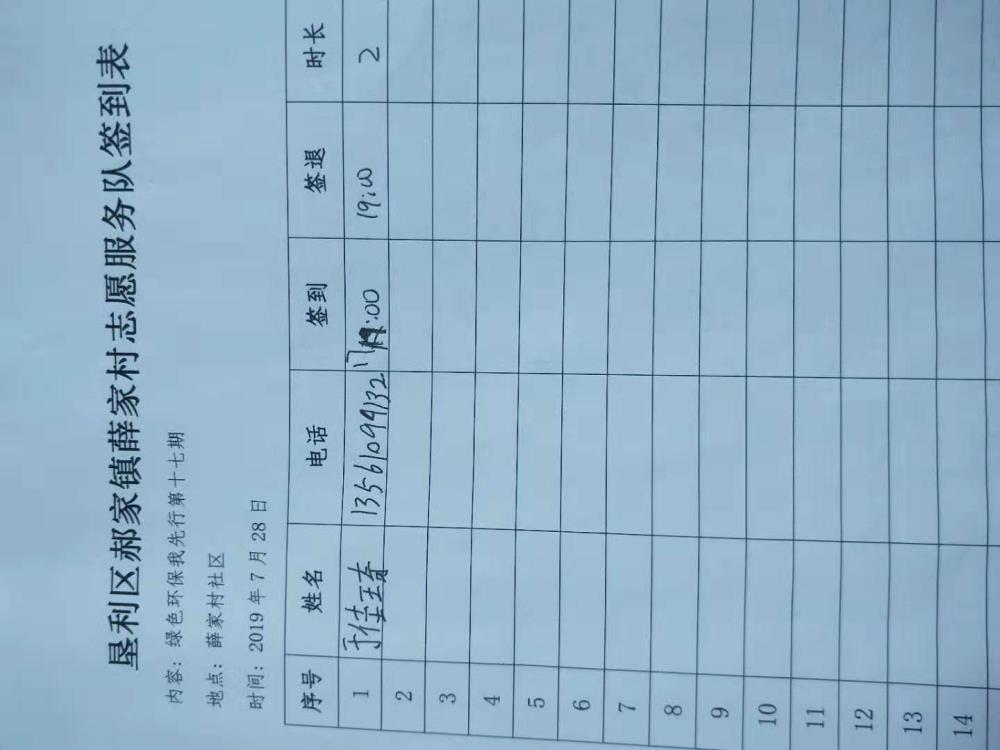 垦利区郝家镇薛家村志愿服务队签到表
内容：绿色环保我先行第十七期
地点：薛家村社区
时间：2019 年 7 月 28 日
序号 姓名 电话 签到 签退 时长
1 13561099132 17:00 19:00 2
2
3
4
5
6
7
8
9
10
11
12
13
14